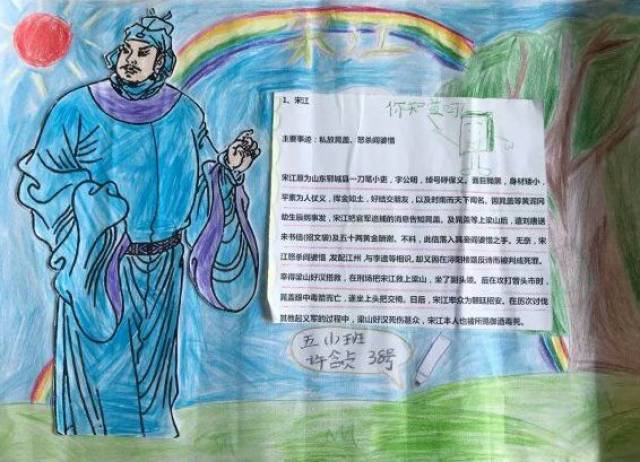 宋江
你知道吗
1、宋江
主要事迹：私放晁盖、怒杀阎婆惜
宋江原为山东郓城县一刀笔小吏，字公明，绰号呼保义。黑，身材矮小，
平素为人仗义，挥金如土，好结交朋友，以及时雨而天下闻名。因晁盖等黄泥冈
劫生辰纲事发，宋江把官军追捕的消息告知晁盖。及晁盖等上梁山后，遣刘唐送
来书信(招文袋)及五十两黄金酬谢。不料，此信落入其妾阎婆惜之手。无奈，宋江
怒杀阎婆惜,发配江州,与李逵等相识,却又因在浔阳楼题反诗而被判成死罪。
幸得梁山好汉搭救，在刑场把宋江救上梁山，坐了副头领。后在攻打曾头市时，
晁盖眼中毒箭而亡，遂坐上头把交椅。日后，宋江率众为朝廷招安。在历次讨伐
其他起义军的过程中，梁山好汉死伤甚众，宋江本人也被所赐御酒毒死。
五小班
许含贞 38号